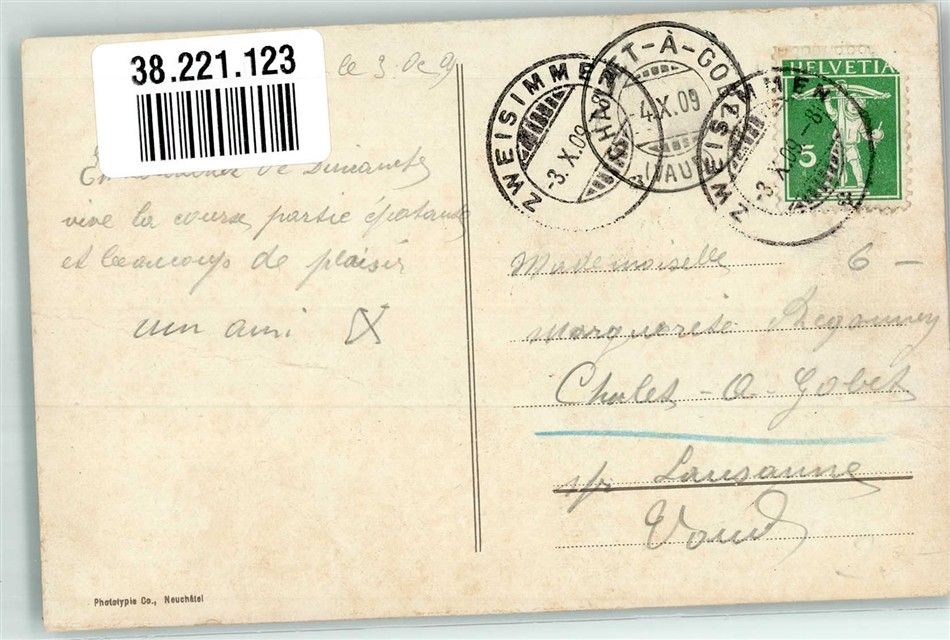 38.221.123
le 3. Oc 9
ZWEISIMMEN
-3.X.09
CHALET-À-GOBET
-4.X.09
(VAUD)
ZWEISIMMEN
-3.X.09.-8
HELVETIA
5
de Dimanche
vive la course partie épatante
et beaucoup de plaisir
un ami X
Mademoiselle 6 –
Marguerite
Chalet-a-Gobet
s/ Lausanne
Vaud
Phototypie Co., Neuchâtel